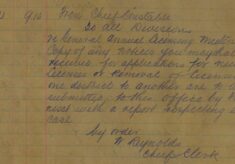 From Chief Constable
To all Divisions
General Annual Licensing Meeting
Copy of any notices you may
required for applications for new
licenses or removal of licenses
one district to another are to
submitted to this office by
with a report respecting
case
By order
W Reynolds
Chief Clerk